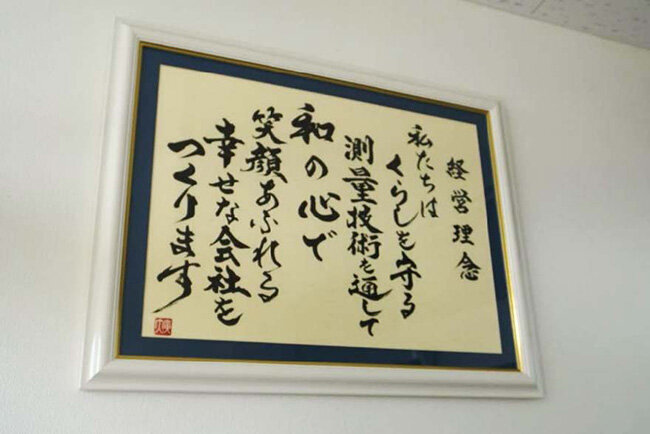 経営理念
私たちは
くらしを守る
測量技術を通して
和の心で
笑顔あふれる
幸せな会社を
つくります